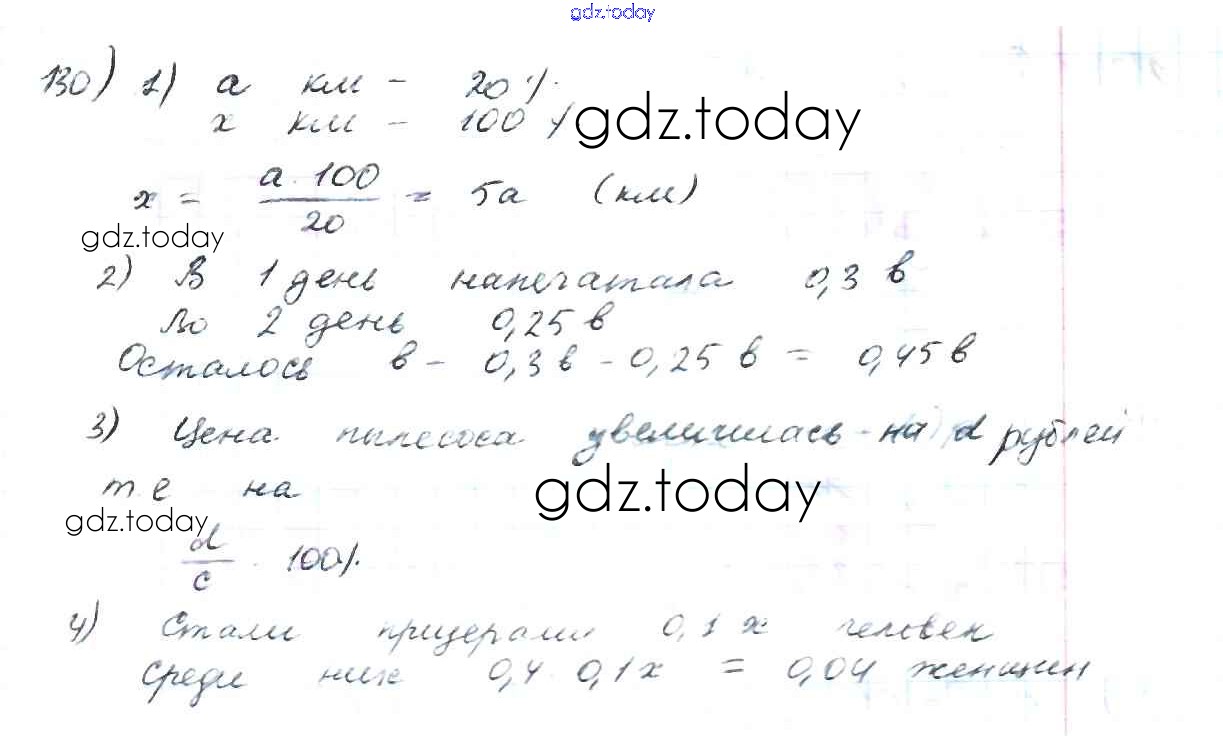 gdz.today
130) 1) а км - 20%
х км - 100% gdz.today
х = а·100/20 = 5а (км)
gdz.today
2) В 1 день напечатала 0,3 в
Во 2 день 0,25 в
Осталось в - 0,3 в - 0,25 в = 0,45 в
3) Цена пылесоса увеличилась на d рублей
т.е на gdz.today
gdz.today
d/c · 100%
4) Стали призерами 0,1 х человек
Среди них 0,4 · 0,1 х = 0,04 женщин